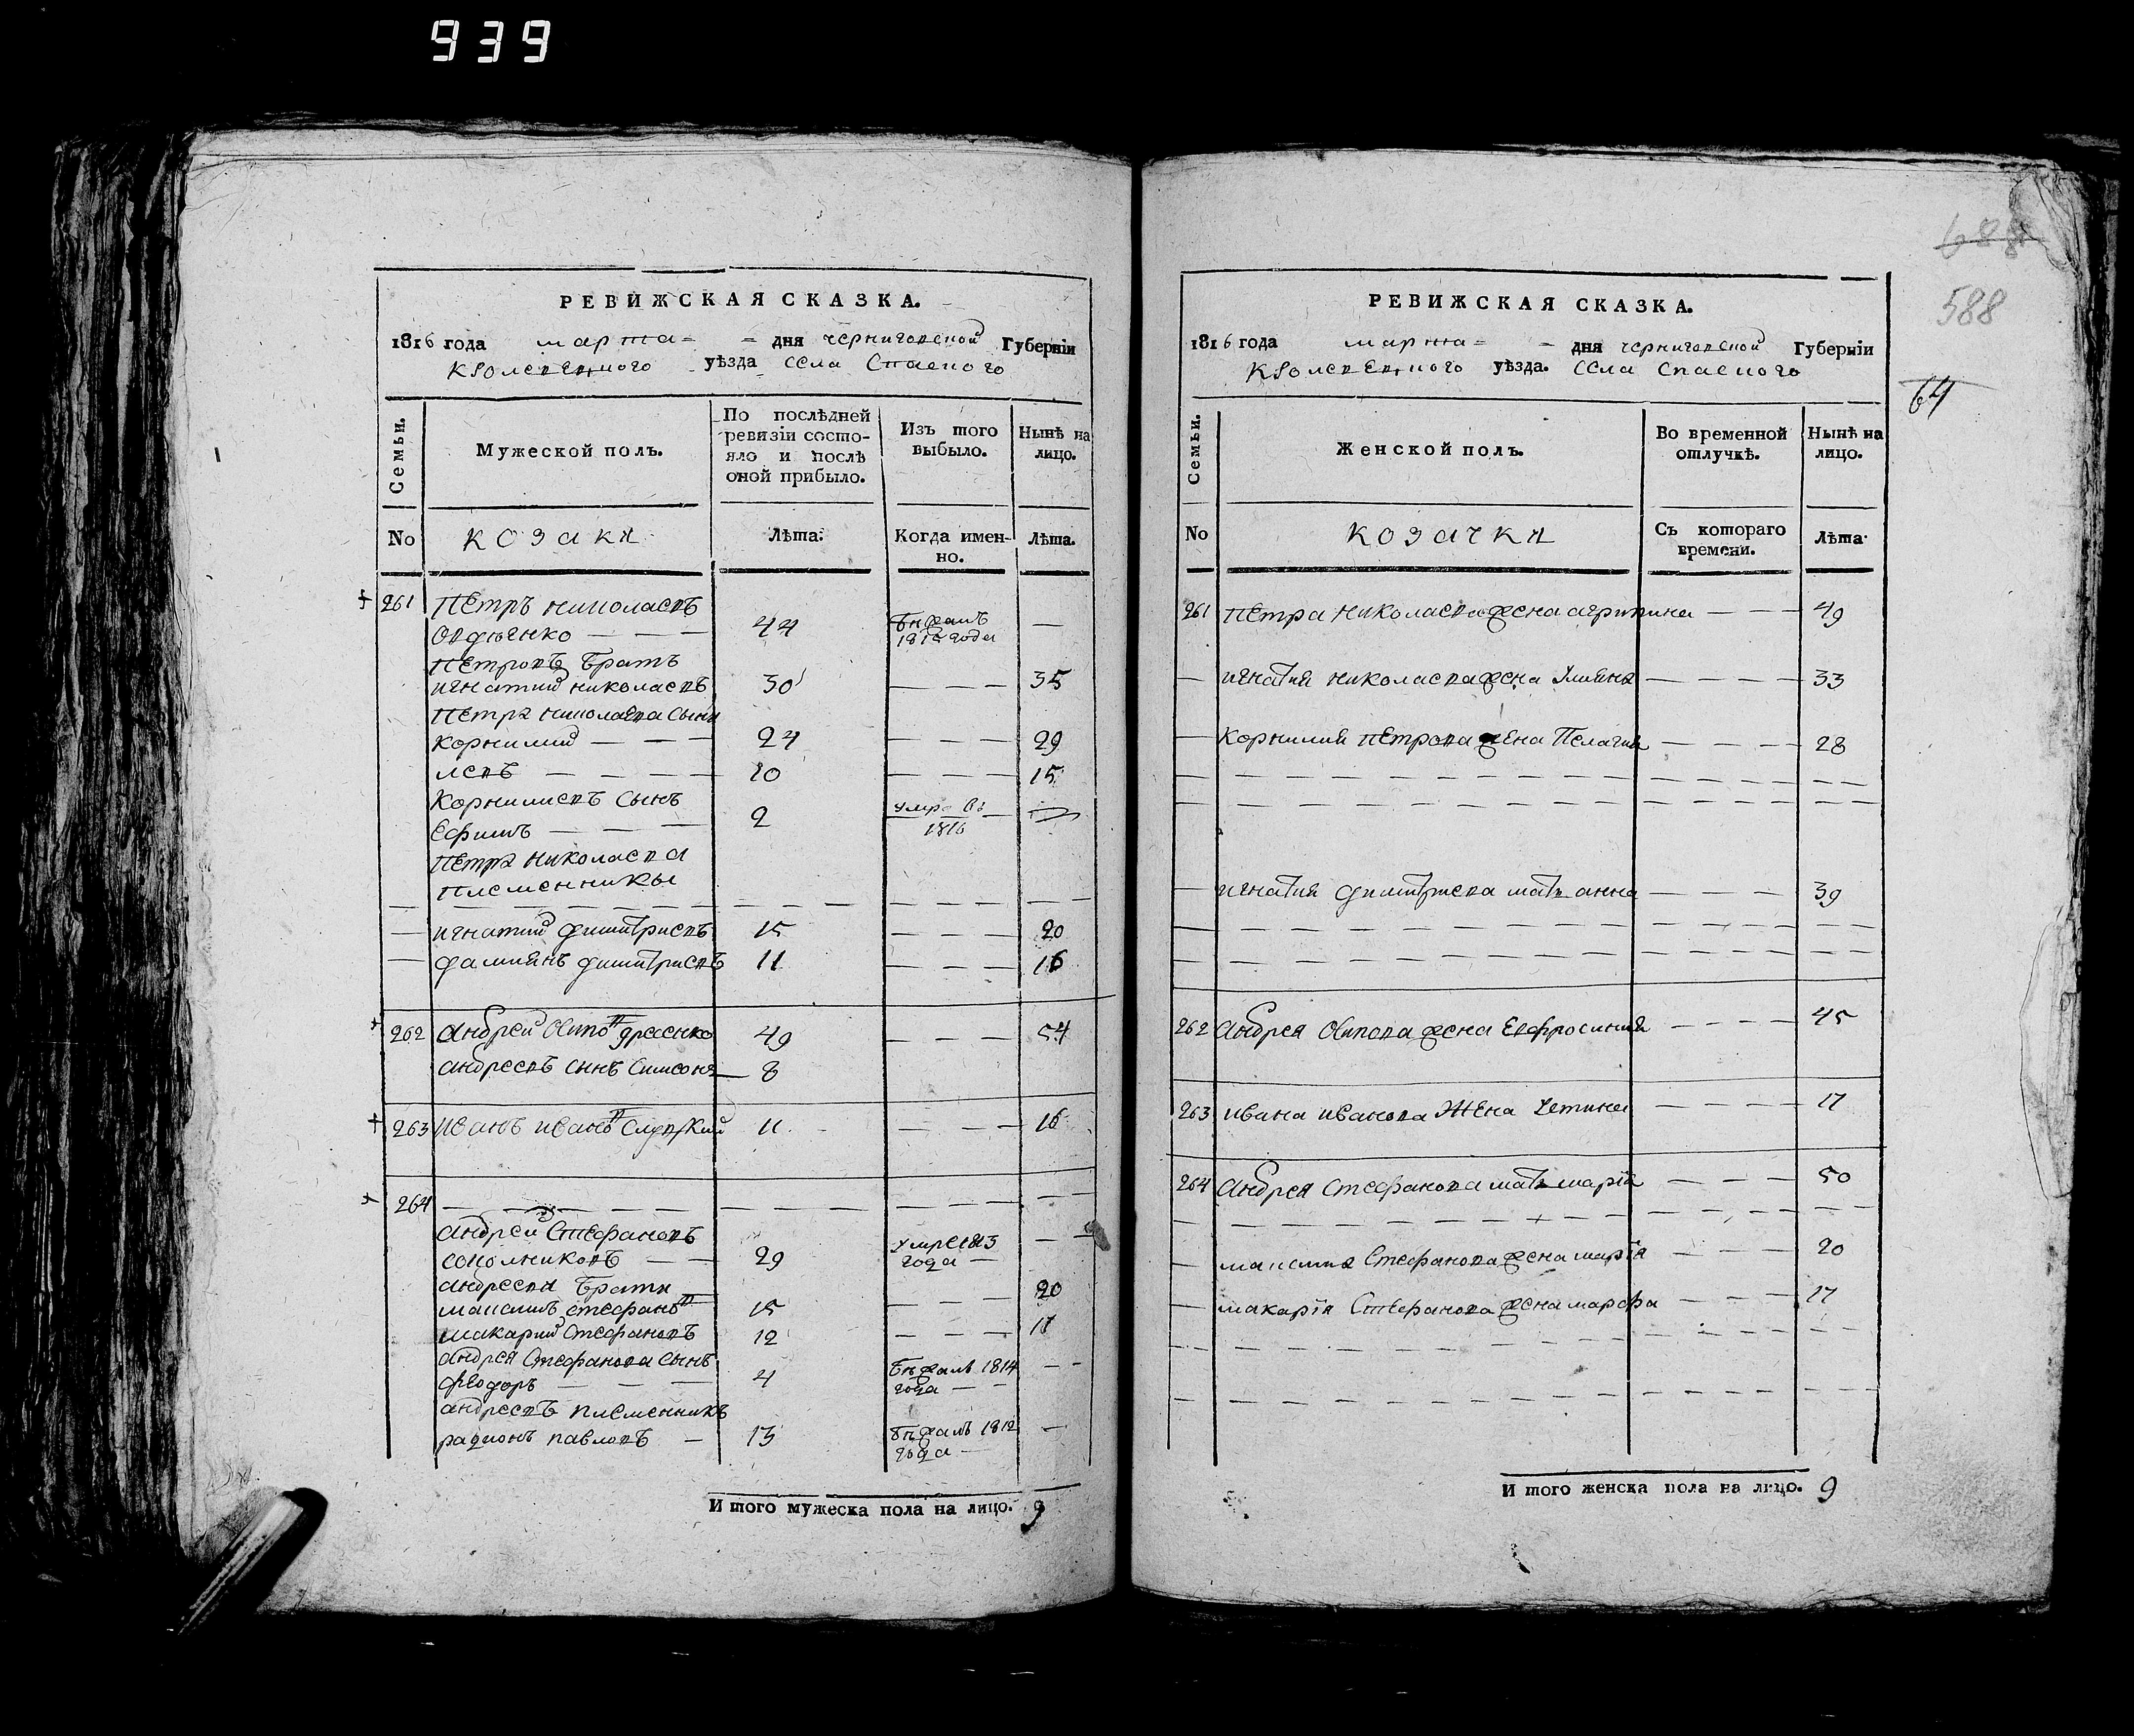 939
РЕВИЖСКАЯ СКАЗКА.
1816 года марта = = дня черниговской Губерніи
Кролевецкого уѣзда села Спаского
Семьи.
Мужеской полъ.
По послѣдней ревизіи состояло и послѣ оной прибыло.
Изъ того выбыло.
Нынѣ на лицо.
No козаки Лѣта. Когда именно. Лѣта.
261 Петръ николаевъ
Овдіенко — — — 44 бѣжалъ 181 года —
Петровъ братъ
игнатий николаевъ 30 — — — 35
Петра николаева сыни
Корнилий — — — 24 — — — 29
левъ — — — — 10 — — — 15
Корнилиевъ сынъ
Ефимъ — — — 2 умре въ 1816
Петра николаева
племенники
игнатий димитриевъ 15 — — — 20
дамиянъ димитриевъ 11 — — — 16
262 андрей Осиповъ 49 — — — 54
андреевъ сынъ Симеонъ — 8
263 иванъ ивановъ 11 — — — 16
264 — — — —
андрей Стефановъ
соколниковъ — — 29 умре 1813 года — — —
андреевы братя
максимъ стефановъ 15 — — — 20
макарий Стефановъ 12 — — — 17
андрея Стефанова сынъ
феодоръ — — — 4 бѣжалъ 1814 года — — — —
андреевъ племенникъ
радионъ павловъ — 13 бѣжалъ 1812 года — —
И того мужеска пола на лицо. 9
688
588
64
РЕВИЖСКАЯ СКАЗКА.
1816 года марта = – дня черниговской Губерніи
Кролевецкого уѣзда. села Спаского
Семьи.
Женской полъ.
Во временной отлучкѣ.
Нынѣ на лицо.
No козачки Съ котораго времени. Лѣта.
261 Петра николаева жена агрипина — — — 49
— игнатия николаева жена Улияна — — — — 33
— Корнилия Петрова жена Пелагия — — — — 28
— игнатия димитриева мать анна — — — 39
262 андрея Осипова жена Евфросиния — — — — 45
263 ивана иванова жена — — — — 17
264 андрея стефанова мать мария — — — 50
— максима Стефанова жена мария — — — 20
— макария Стефанова жена марфа — — — 17
И того женска пола на лицо. 9